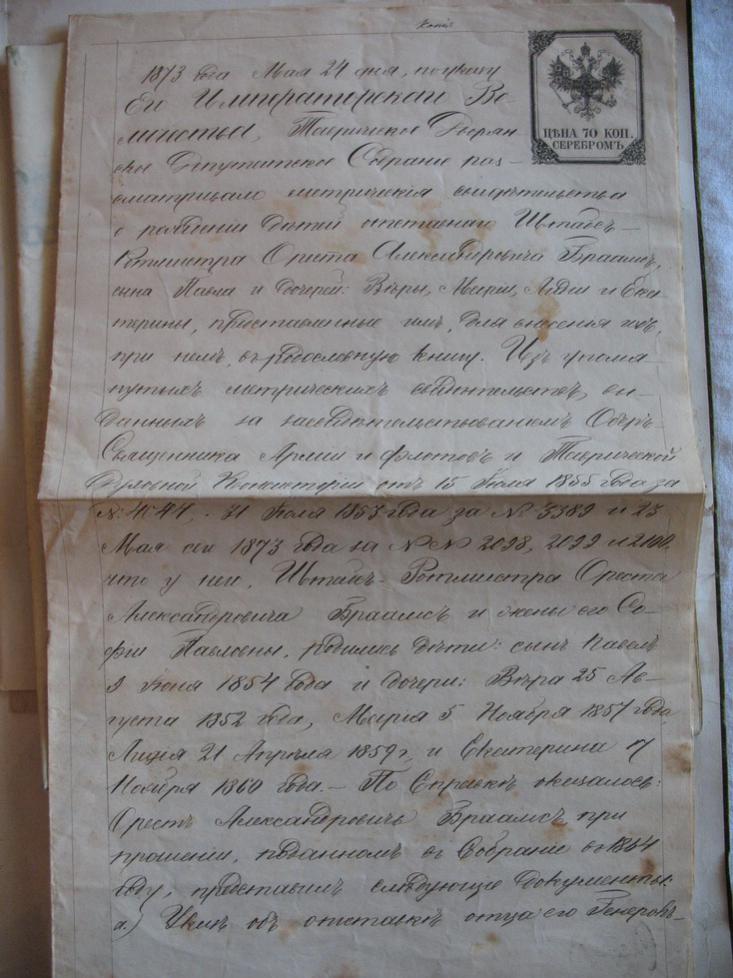 Копія
ЦѢНА 70 КОП.
СЕРЕБРОМЪ.
1873 года Мая 24 дня, по указу
Его Императорскаго Ве-
личества, Таврическое Дворян-
ское Депутатское Собраніе раз-
сматривало метрическія свидѣтельства
о рожденіи дѣтей отставнаго Штабсъ-
Ротмистра Ореста Александровича Браамсъ,
сына Павла и дочерей: Вѣры, Маріи, Лидіи и Ека-
терины, представленные имъ, для внесенія ихъ,
при немъ, въ родословную книгу. Изъ упомя-
нутыхъ метрическихъ свидѣтельствъ, вы-
данныхъ за засвидѣтельствованіемъ Оберъ-
Священника Арміи и флотовъ и Таврической
Духовной Консисторіи отъ 15 Іюля 1855 года за
31 Іюля 1857 года за № 3389 и 23
Мая сего 1873 года за №№ 2098, 2099 и 2100,
что у него, Штабсъ-Ротмистра Ореста
Александровича Браамсъ и жены его Со-
фіи Павловны, родились дѣти: сынъ Павелъ
9 Іюня 1854 года и дочери: Вѣра 25 Ав-
густа 1852 года, Марія 5 Ноября 1857 года,
Лидія 21 Апрѣля 1859 г. и Екатерина 17
Ноября 1860 года. — По Справкѣ оказалось:
Орестъ Александровичъ Браамсъ при
прошеніи, поданномъ въ Собраніе въ 1844
году, представилъ слѣдующіе документы:
а.) Указъ объ отставкѣ отца его Генералъ-